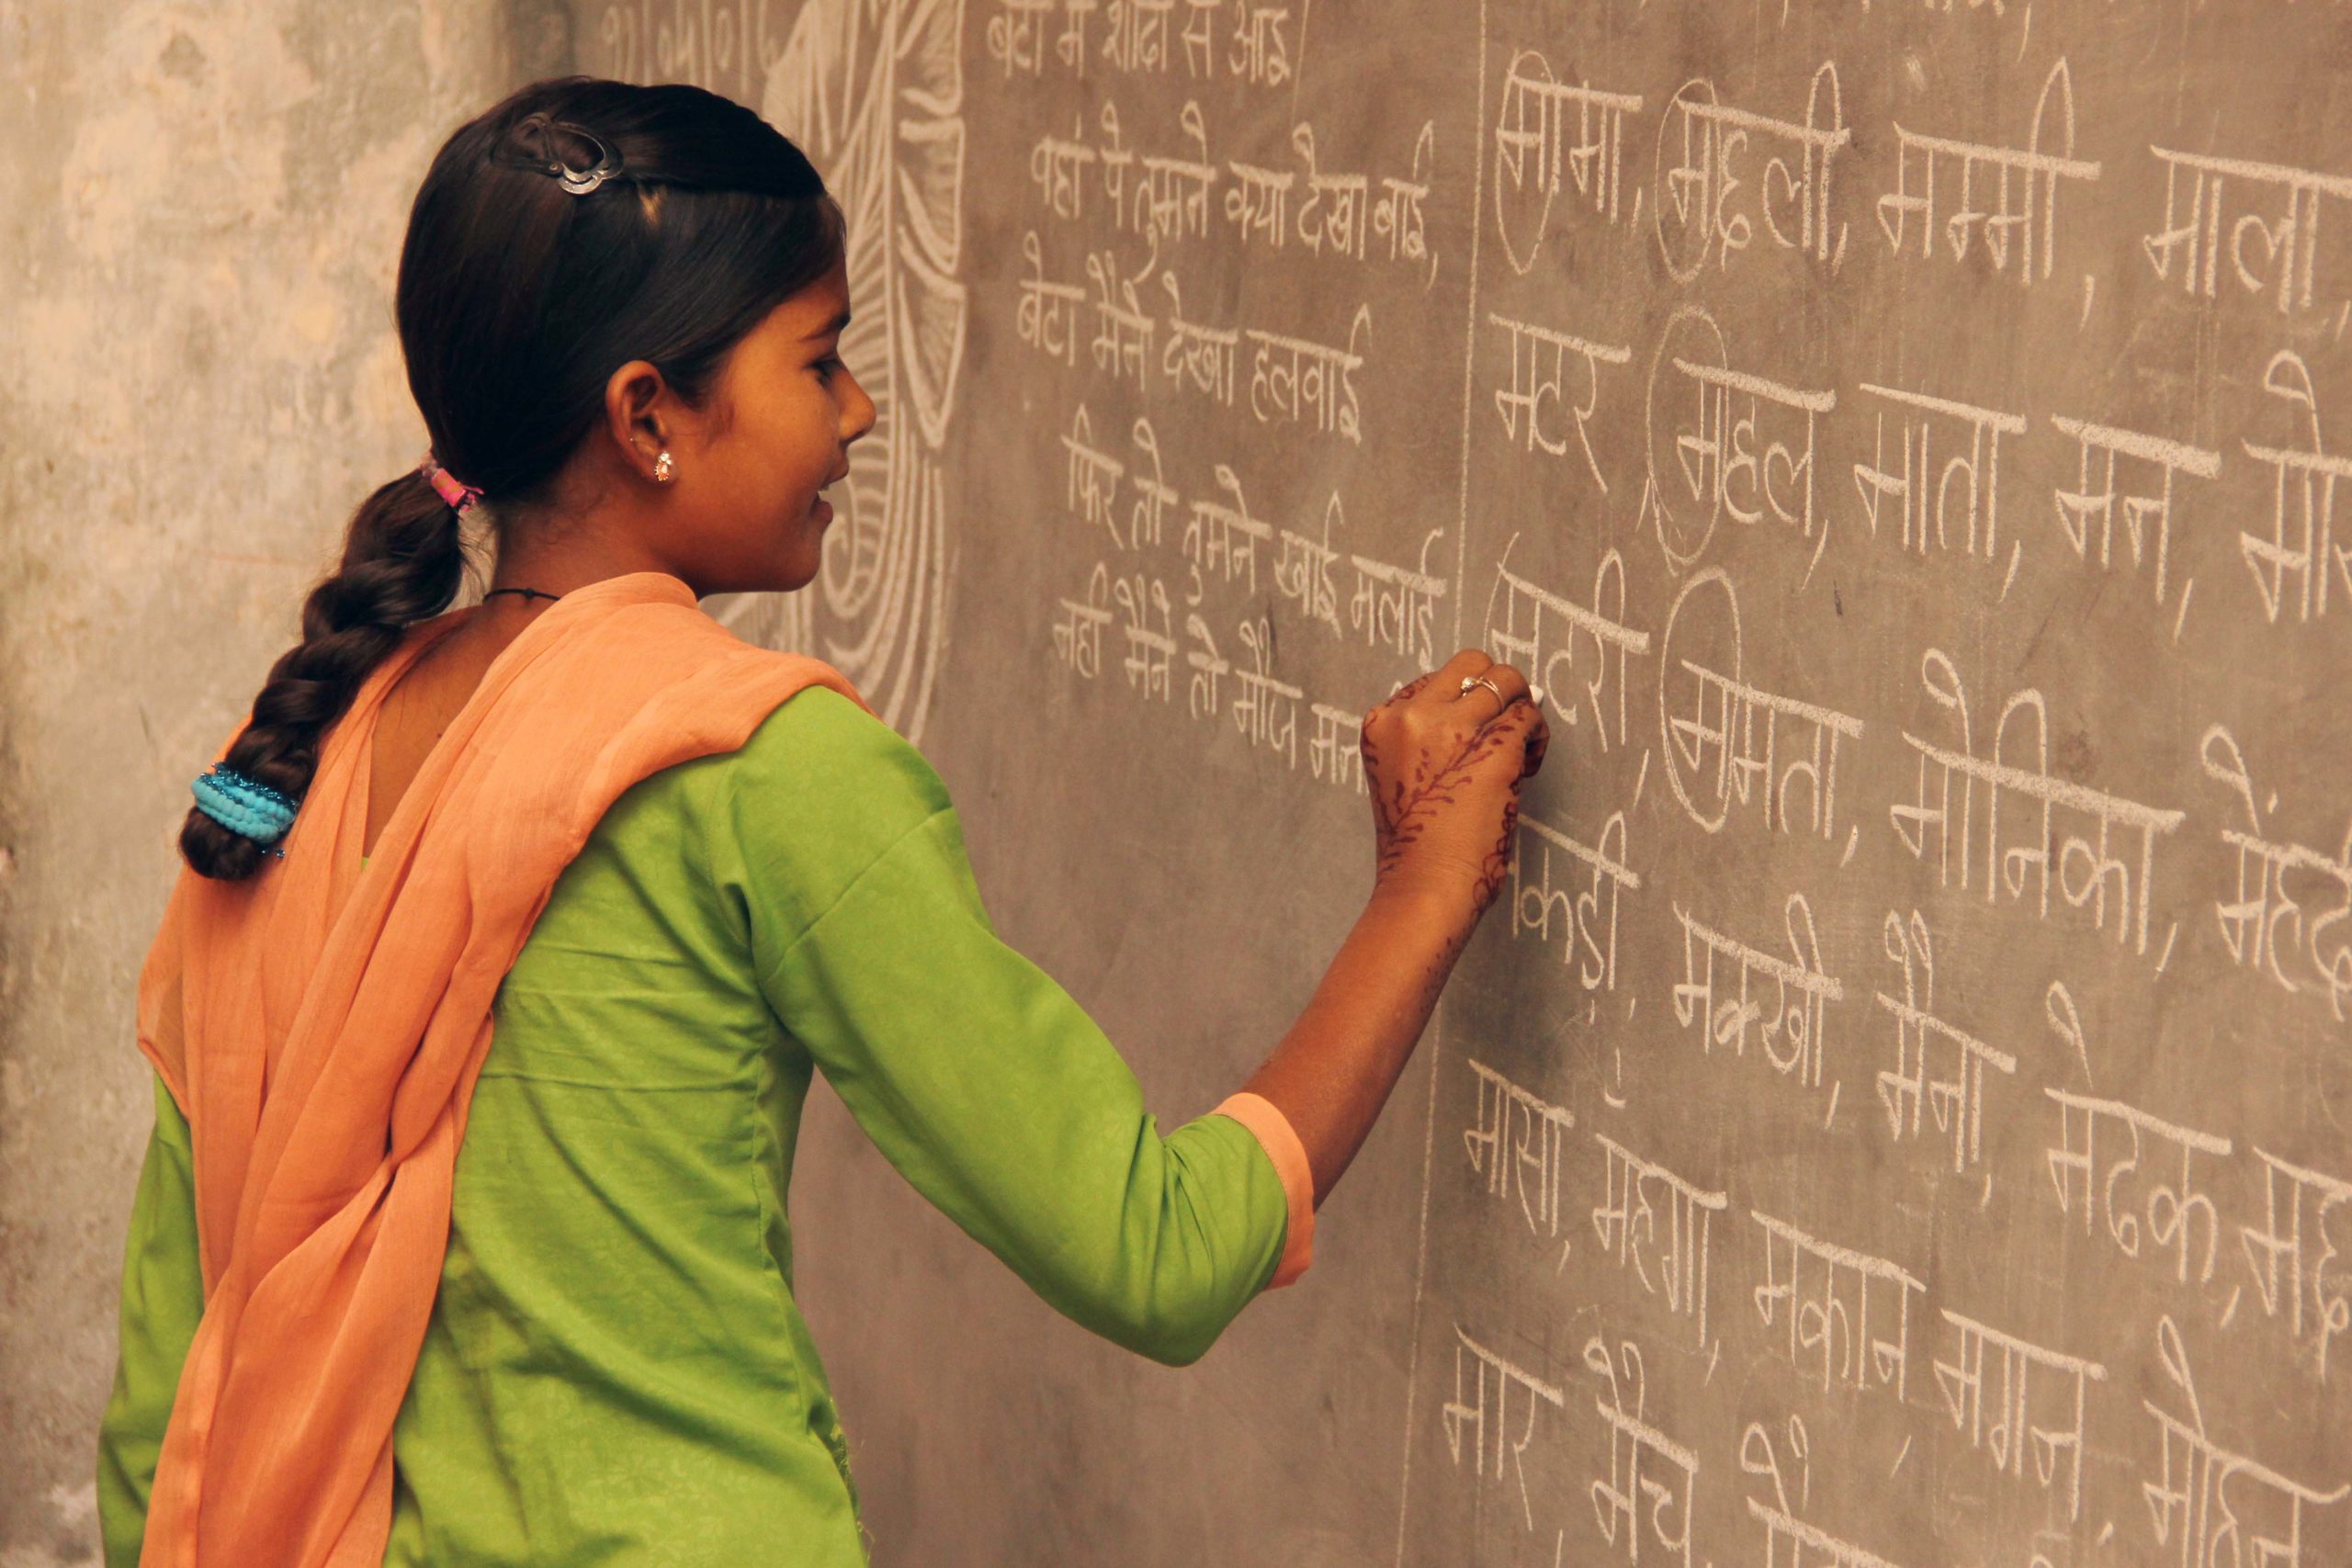 बेटा मै शादी से आई
वहां पे तुमने क्या देखा बाई,
बेटा मैने देखा हलवाई
फिर तो तुमने खाई मलाई
नही मैने तो मौज
मामा, मछली, मम्मी, माला,
मटर, महल, माता, मन,
मटरी, ममता, मोनिका,
मक्खी, मैना, मेंढक,
मासी, महंगा, मकान, मगन,
मोर, मैच, मोहन